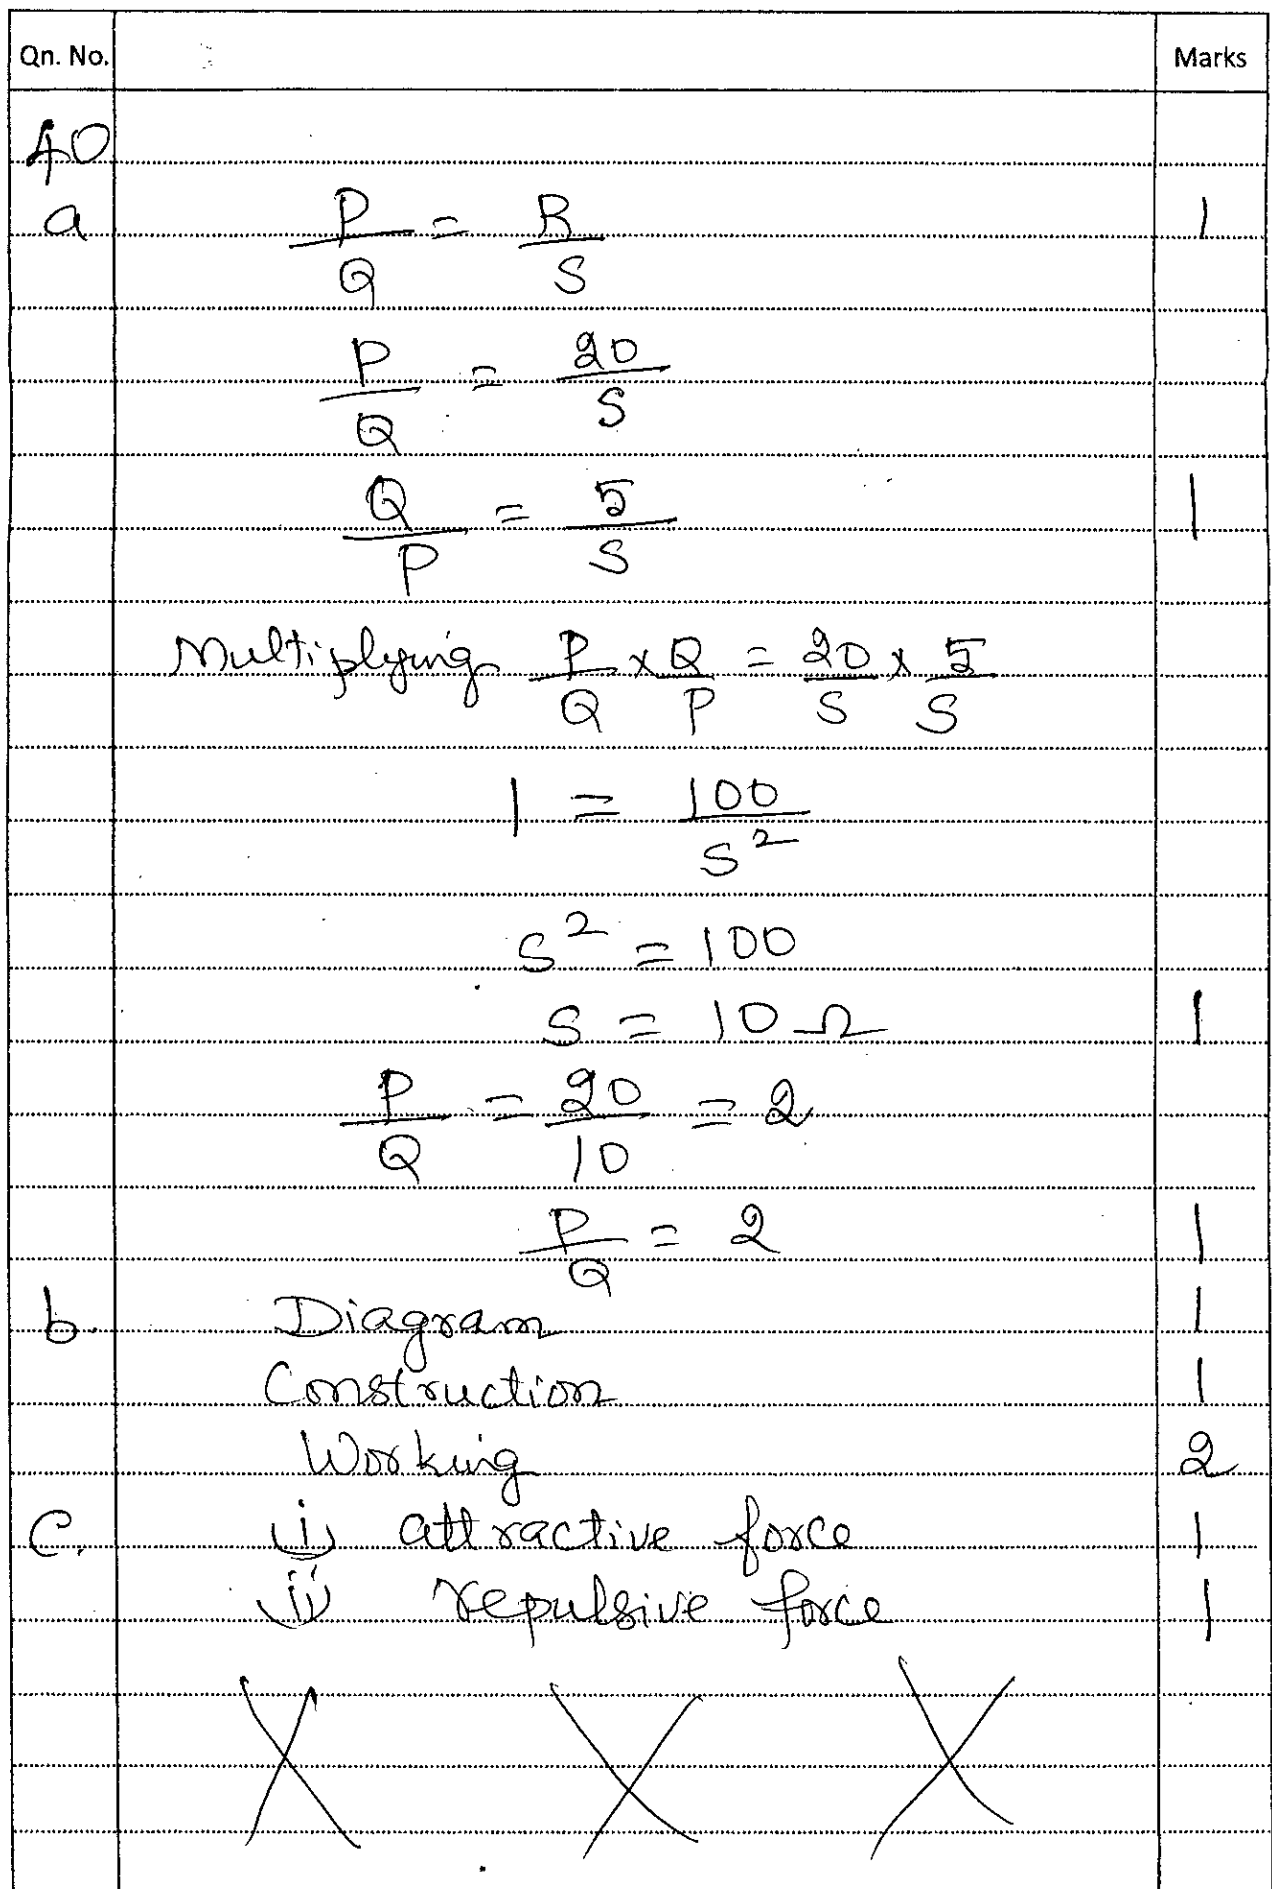 Qn. No. Marks
40
a P/Q = R/S 1
P/Q = 20/S
Q/P = 5/S 1
Multiplying P/Q x Q/P = 20/S x 5/S
1 = 100/S²
S² = 100
S = 10 Ω 1
P/Q = 20/10 = 2
P/Q = 2 1
b. Diagram 1
Construction 1
Working 2
C. (i) attractive force 1
(ii) repulsive force 1
X X X